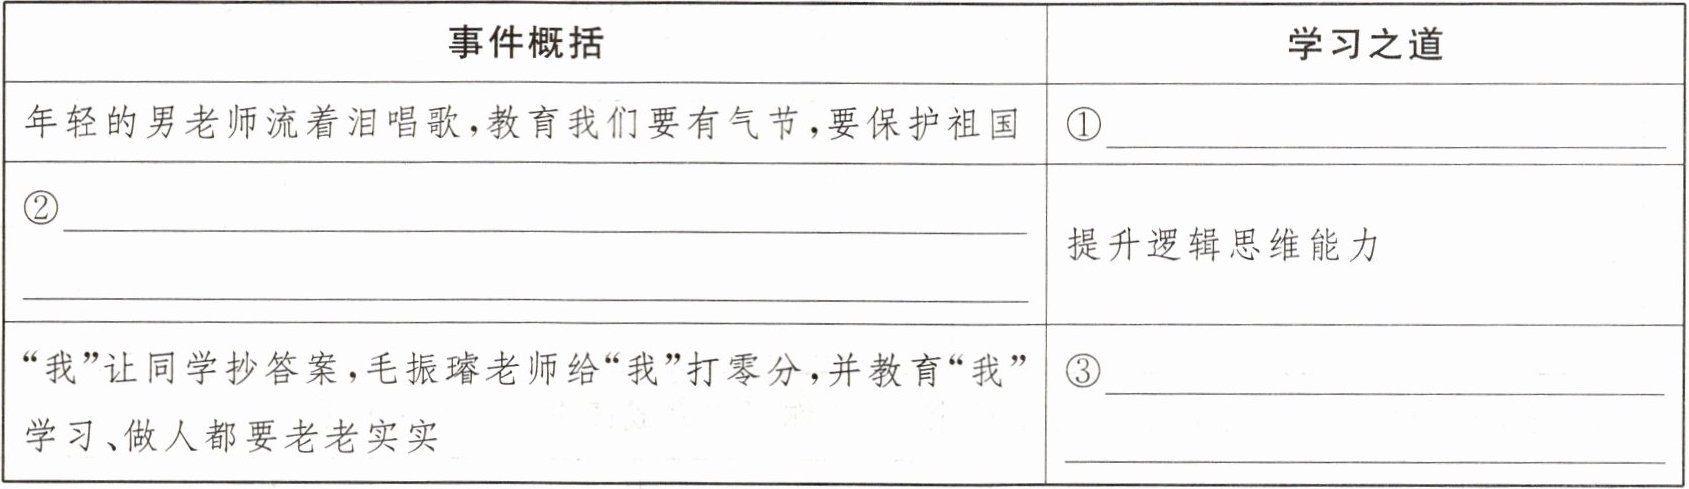 事件概括
学习之道
年轻的男老师流着泪唱歌,教育我们要有气节,要保护祖国
①
②
提升逻辑思维能力
“我”让同学抄答案,毛振璿老师给“我”打零分,并教育“我”
学习、做人都要老老实实
③